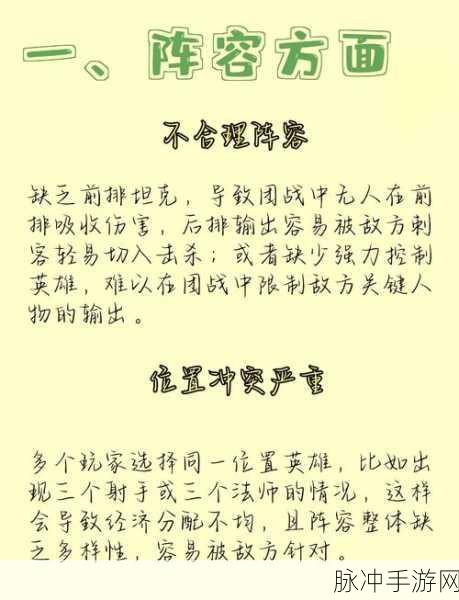 一、阵容方面
不合理阵容
缺乏前排坦克，导致团战中无人在前
排吸收伤害，后排输出容易被敌方刺
客轻易切入击杀；或者缺少强力控制
英雄，难以在团战中限制敌方关键人
物的输出。
位置冲突严重
多个玩家选择同一位置英雄，比如出
现三个射手或三个法师的情况，这样
会导致经济分配不均，且阵容整体缺
乏多样性，容易被敌方针对。
脉冲手游网